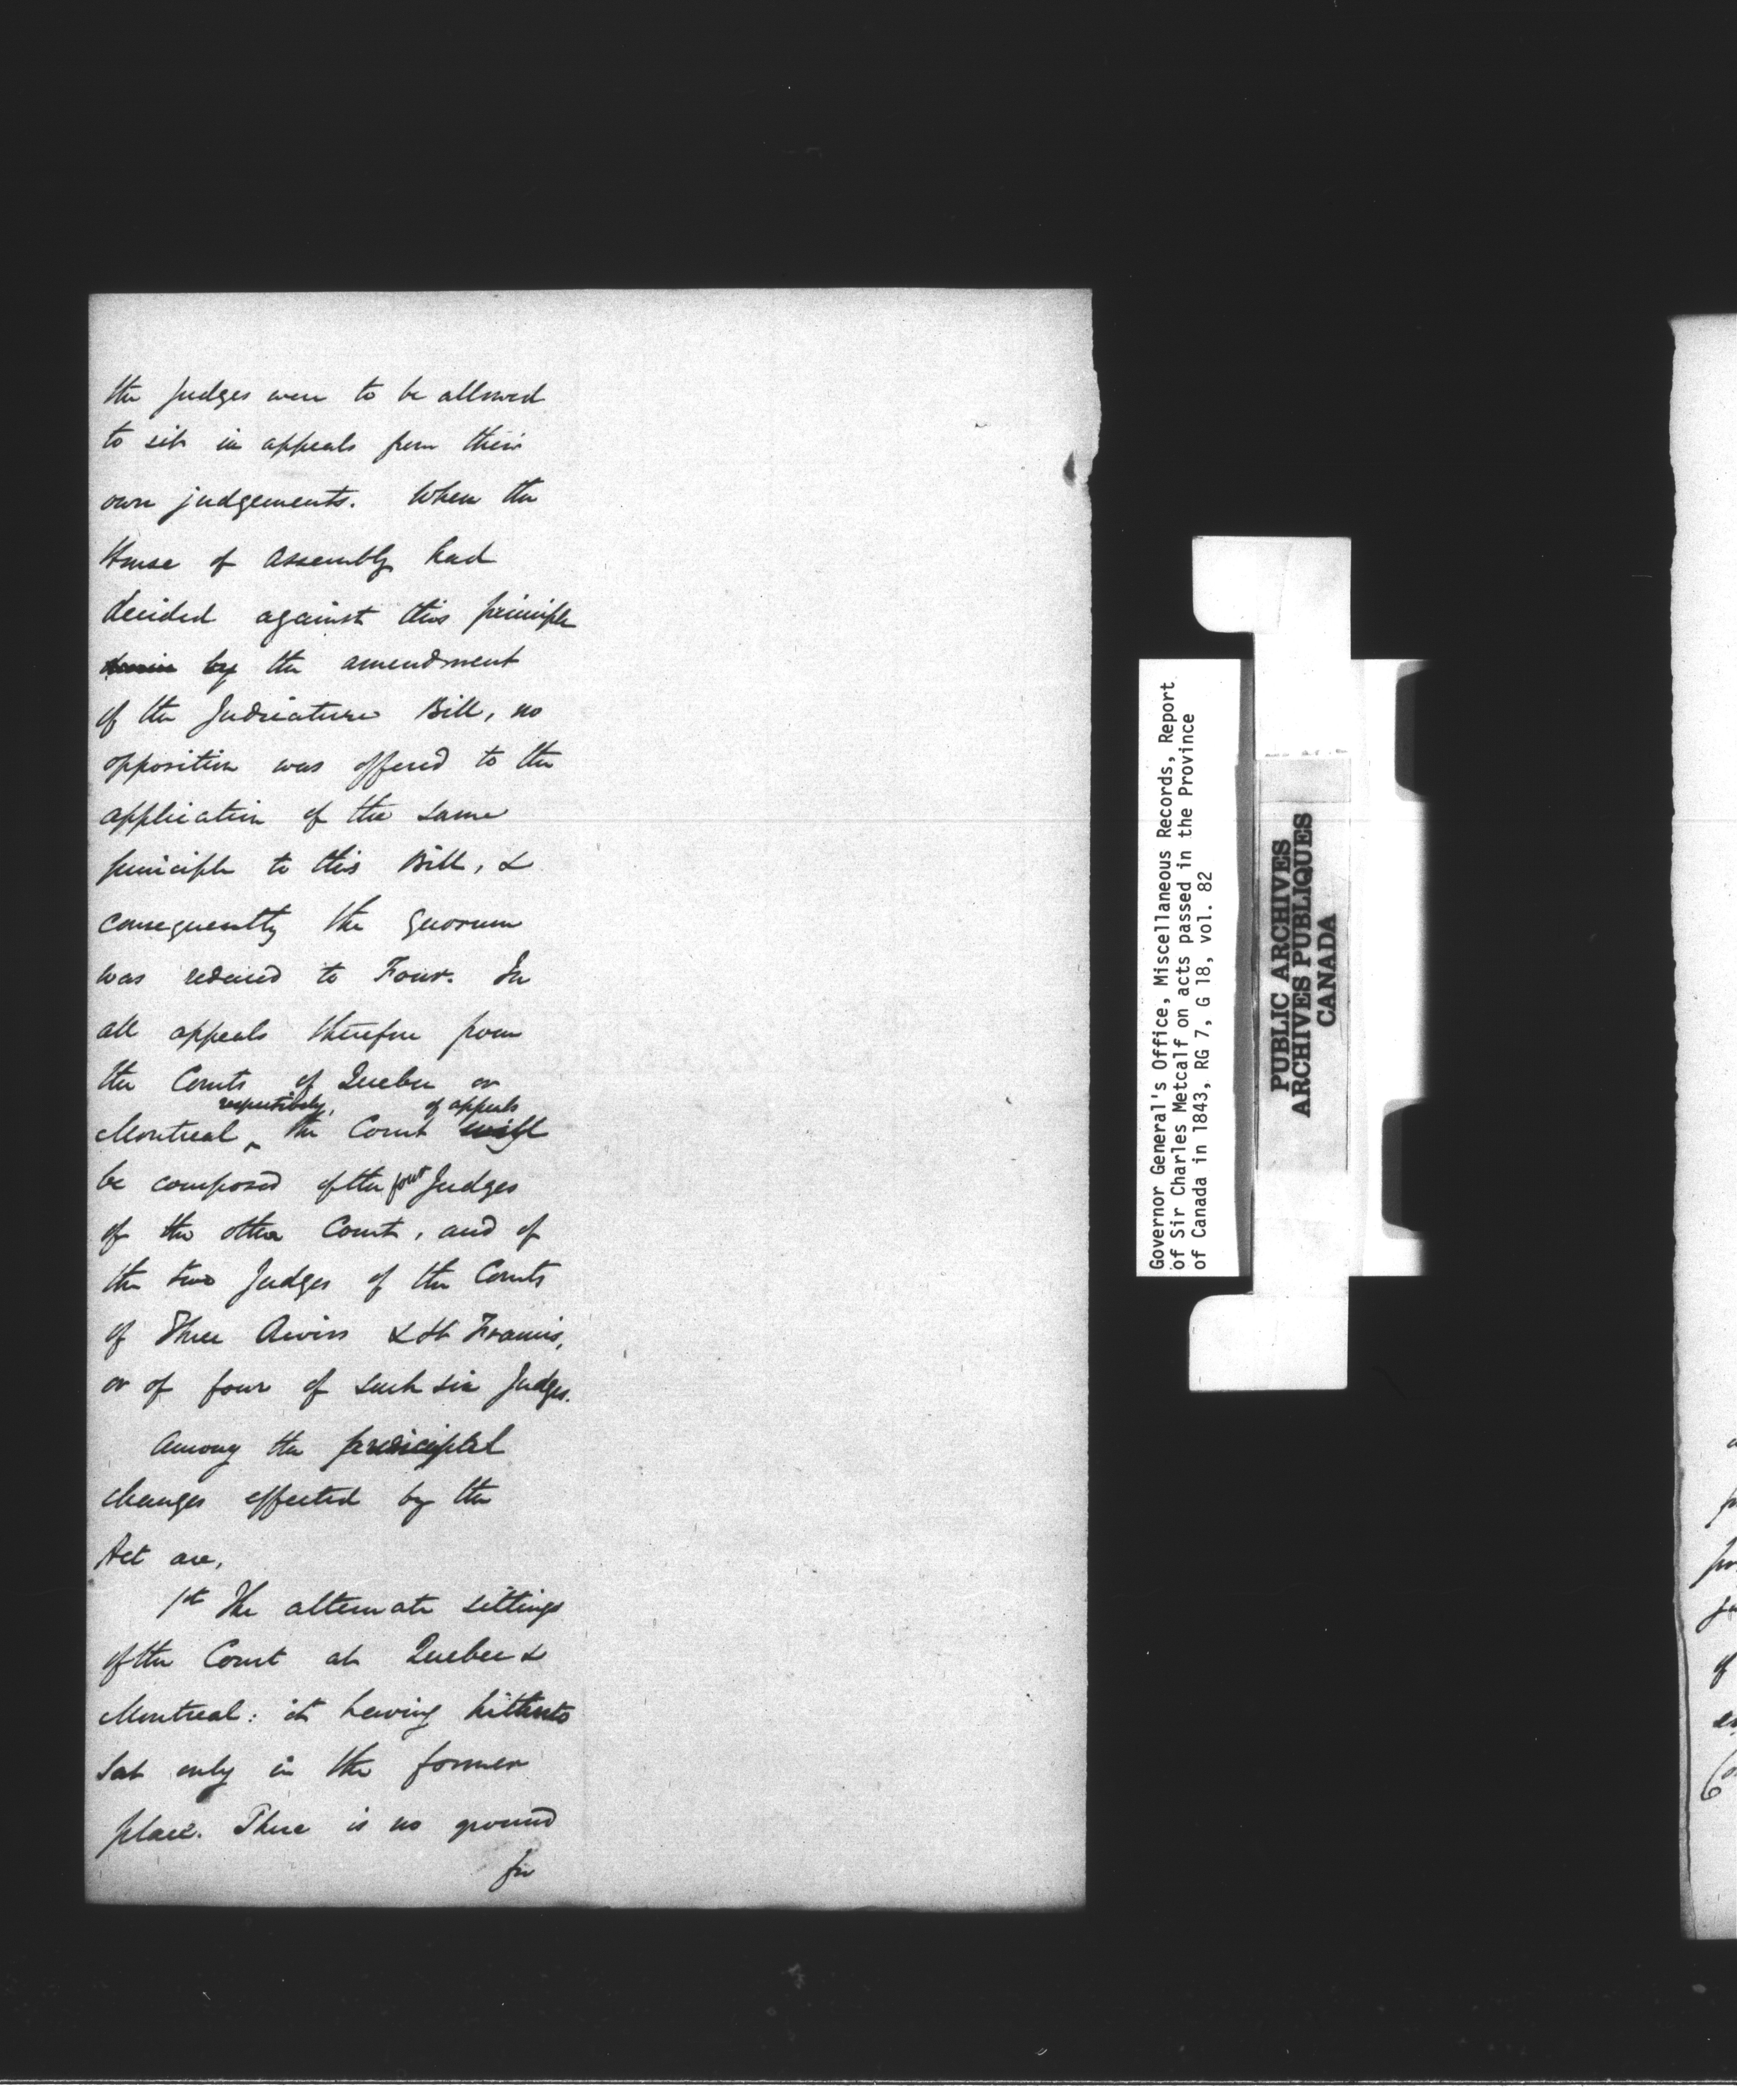 the Judges were to be allowed
to sit in appeals from their
own judgements. When the
House of Assembly had
decided against this principle
by the amendment
of the Judicature Bill, no
opposition was offered to the
application of the same
principle to this Bill, &
consequently the quorum
was reduced to Four. In
all appeals therefore from
the Courts of Quebec or
respectively, of appeals
Montreal ‸ the Court will
be composed of the four Judges
of the other Court, and of
the two Judges of the Courts
of Three Rivers & St Francis,
or of four of such six Judges.
Among the principal
changes effected by the
Act are,
1st The alternate sittings
of the Court at Quebec &
Montreal: it having hitherto
sat only in the former
place. There is no ground
for
Governor General's Office, Miscellaneous Records, Report
of Sir Charles Metcalf on acts passed in the Province
of Canada in 1843, RG 7, G 18, vol. 82
PUBLIC ARCHIVES
ARCHIVES PUBLIQUES
CANADA